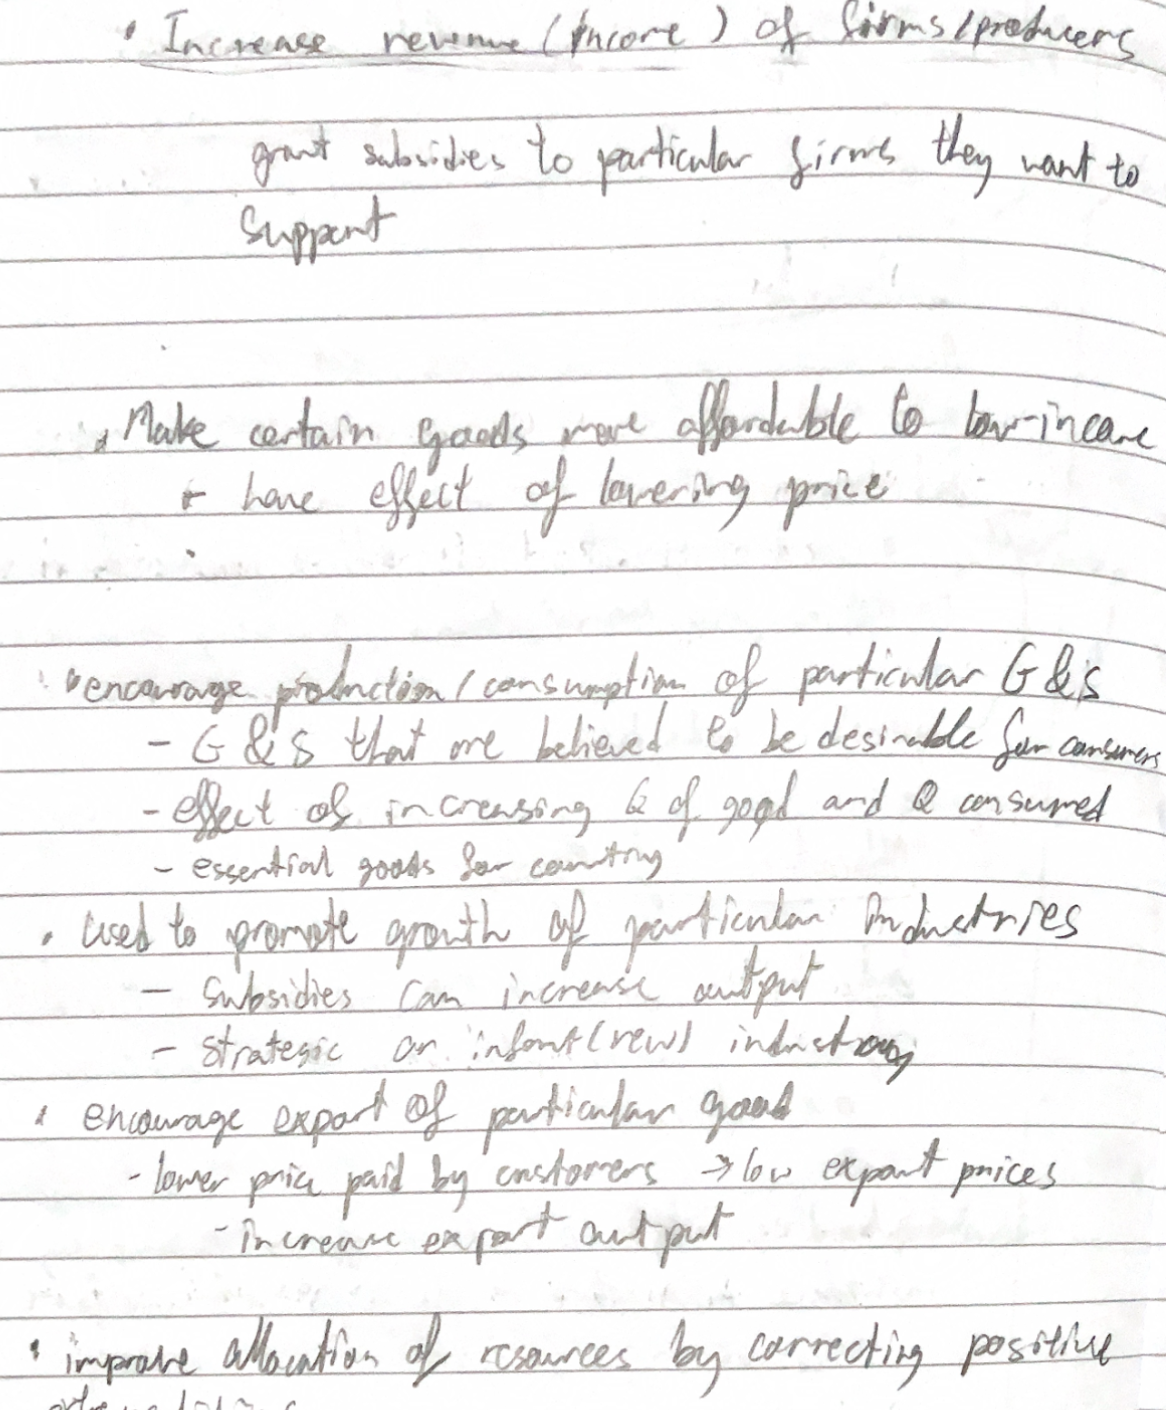 • Increase revenue (income) of firms/producers
grant subsidies to particular firms they want to
support
• Make certain goods more affordable to low-income
+ have effect of lowering price
• encourage production/consumption of particular G&S
- G&S that are believed to be desirable for consumers
- effect of increasing Q of good and Q consumed
- essential goods for country
• Used to promote growth of particular industries
- Subsidies can increase output
- Strategic or infant (new) industry
• encourage export of particular good
- lower price paid by customers → low export prices
- increase export output
• improve allocation of resources by correcting positive
externalities